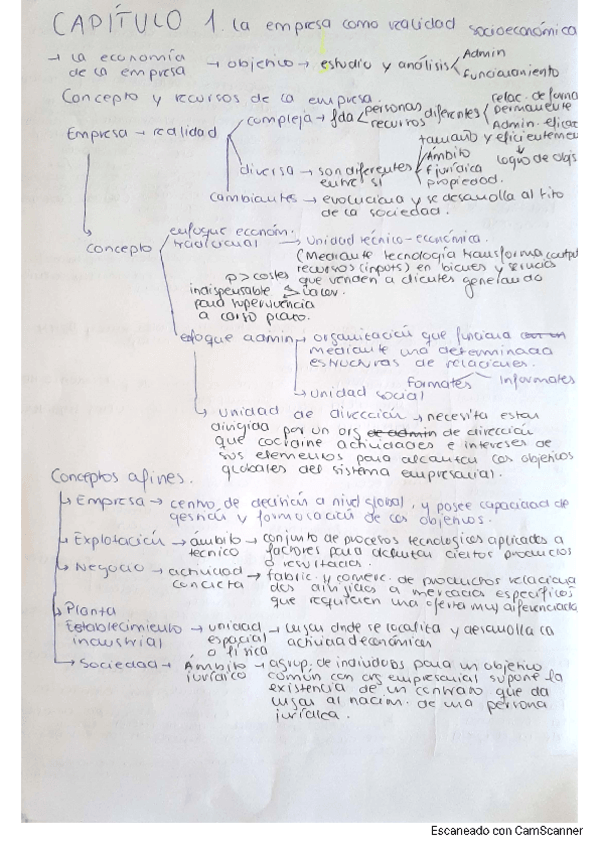 CAPÍTULO 1. La empresa como realidad socioeconómica
→ La economía de la empresa → objetivo → estudio y análisis < Admin
funcionamiento
Concepto y recursos de la empresa.
Empresa → realidad
compleja → fda < personas recursos diferentes < relac. de forma permanente
Admin. eficaz y eficientemen
logro de objs
diversa → son diferentes entre sí
tamaño
Ámbito
f jurídica
propiedad.
cambiantes → evoluciona y se desarrolla al rito de la sociedad.
Concepto
enfoque económ. tradicional → unidad técnico-económica.
(Mediante tecnología transforma
recursos (inputs) en bienes y servicios (output
que venden a clientes generando
p > costes
indispensable
para supervivencia
a corto plazo.
enfoque admin → organización que funciona
mediante una determinada
estructuras de relaciones.
formales informales
↳ unidad social
↳ Unidad de dirección → necesita estar
dirigida por un org de dirección
que coordine actividades e intereses de
sus elementos para alcanzar los objetivos
globales del sistema empresarial.
Conceptos afines.
↳ Empresa → centro de decisión a nivel global, y posee capacidad de
gestión y formulación de los objetivos.
↳ Explotación → ámbito técnico → conjunto de procesos tecnológicos aplicados a
factores para disfrutar ciertos productos
o resultados.
↳ Negocio → actividad concreta → fabric. y comerc. de productos relaciona
dos dirigidos a mercados específicos
que requieren una oferta muy diferenciada
↳ Planta
Establecimiento industrial → unidad espacial o física → Lugar dnde se localiza y desarrolla la
actividad económica
↳ Sociedad → Ámbito jurídico → agrup. de individuos para un objetivo
común con org empresarial supone la
existencia de un contrato que da
lugar al nacim. de una persona
jurídica.
Escaneado con CamScanner